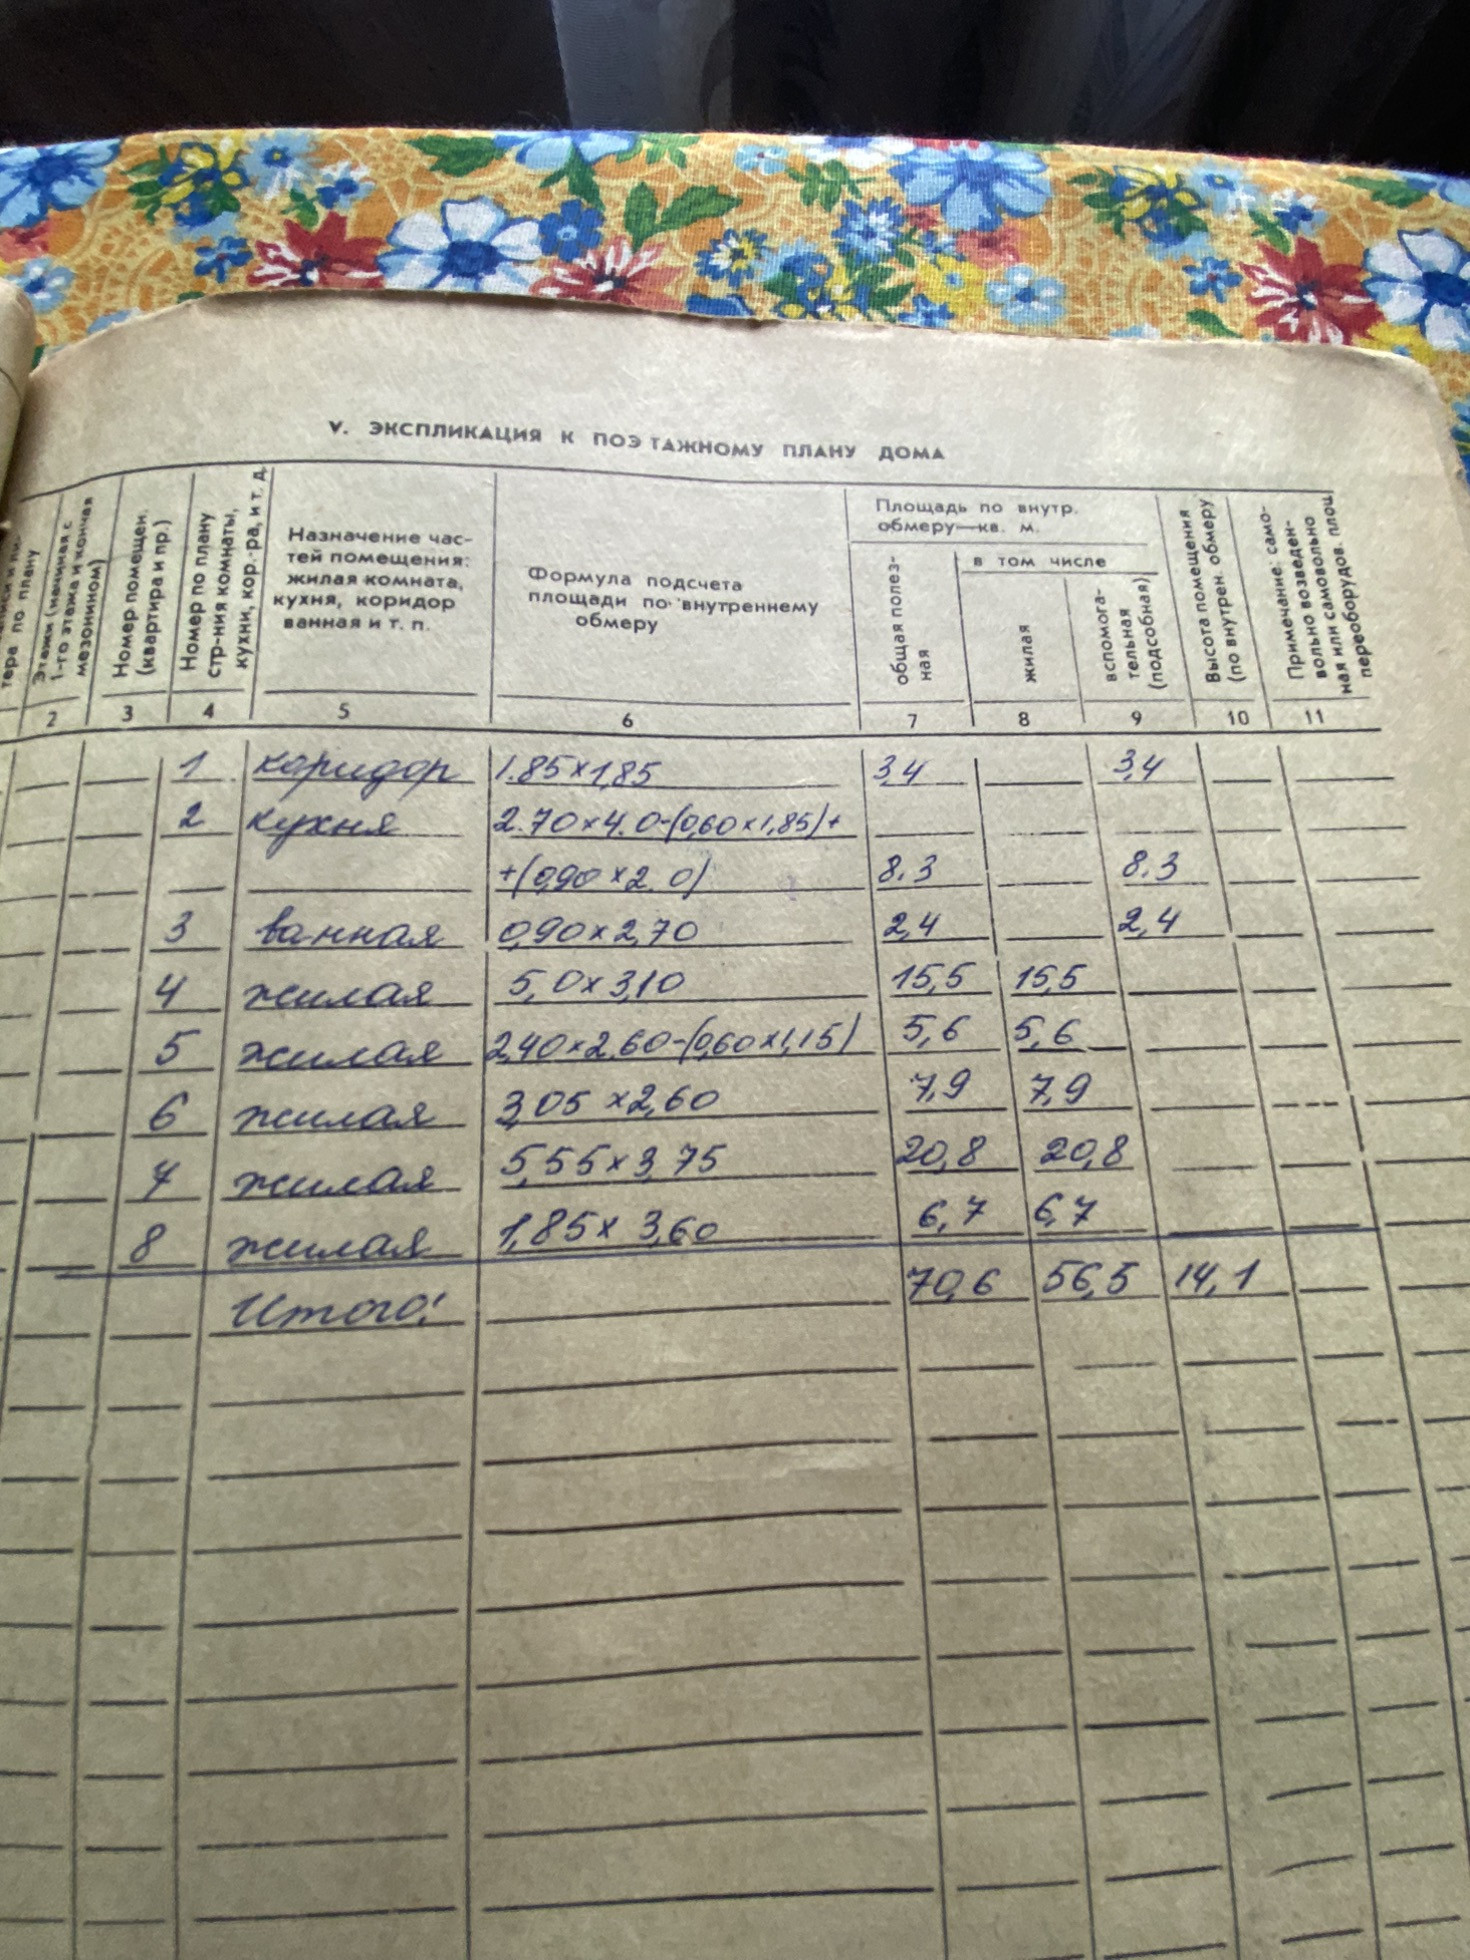 V. ЭКСПЛИКАЦИЯ К ПОЭТАЖНОМУ ПЛАНУ ДОМА
тера по плану
Этажи (начиная с
1-го этажа и кончая
мезонином)
Номер помещен.
(квартира и пр.)
Номер по плану
стр-ния комнаты,
кухни, кор.-ра, и т. д.
Назначение час-
тей помещения:
жилая комната,
кухня, коридор
ванная и т. п.
Формула подсчета
площади по внутреннему
обмеру
Площадь по внутр.
обмеру—кв. м.
общая полез-
ная
в том числе
жилая
вспомога-
тельная
(подсобная)
Высота помещения
(по внутрен. обмеру)
Примечание: само-
вольно возведен-
ная или самовольно
переоборудов. площ.
2 3 4 5 6 7 8 9 10 11
1 коридор 1.85×1,85 3,4 3,4
2 кухня 2.70×4.0-(0,60×1,85)+
+(0,90×2.0) 8.3 8.3
3 ванная 0,90×2,70 2,4 2,4
4 жилая 5,0×3,10 15,5 15,5
5 жилая 2,40×2.60-(0,60×1,15) 5,6 5,6
6 жилая 3,05×2,60 7,9 7,9
7 жилая 5,55×3,75 20,8 20,8
8 жилая 1,85×3,60 6,7 6,7
Итого: 70,6 56,5 14,1